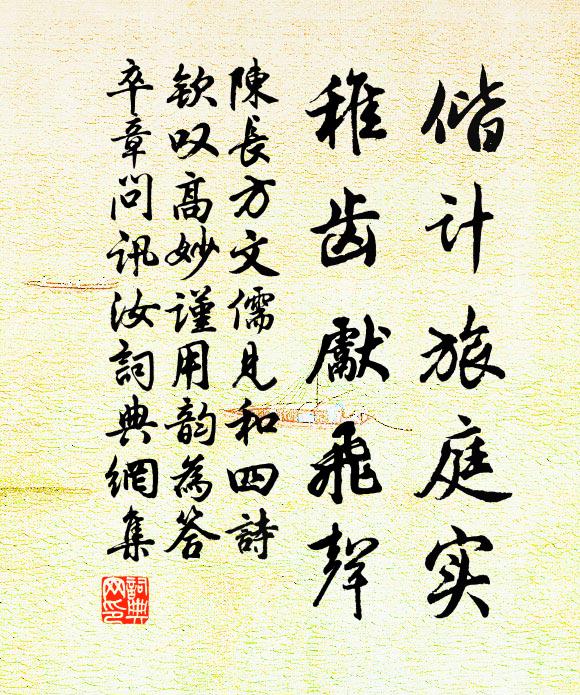 偕计旅庭实
稚齿献飛聲
陳長方文儒見和四詩
欽叹高妙謹用韵為答
卒章問訊汝詞典網集
詞典网印